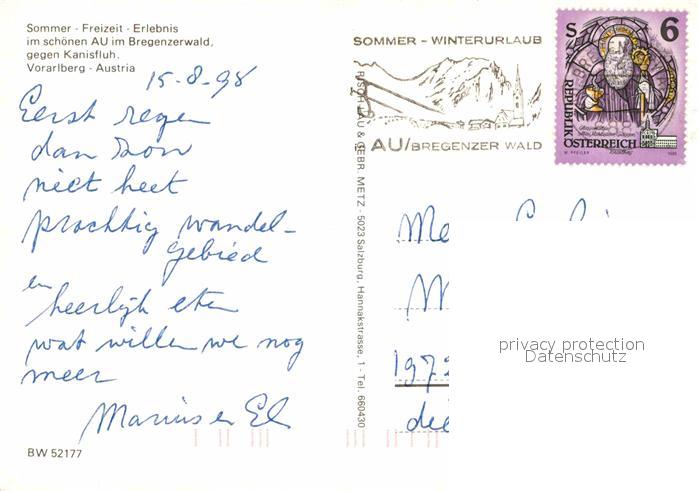 Sommer - Freizeit - Erlebnis
im schönen AU im Bregenzerwald,
gegen Kanisfluh.
Vorarlberg - Austria
15-8-98
Eerst regen
dan zon
niet heet
prachtig wandel-
gebied
en
heerlijk eten
wat willen we nog
meer
Marius en El
BW 52177
RISCH-LAU & GEBR. METZ - 5023 Salzburg, Hannakstrasse, 1 - Tel. 660430
SOMMER - WINTERURLAUB
AU/BREGENZER WALD
S 6
REPUBLIK
ÖSTERREICH
Me
M
1972
die
privacy protection
Datenschutz